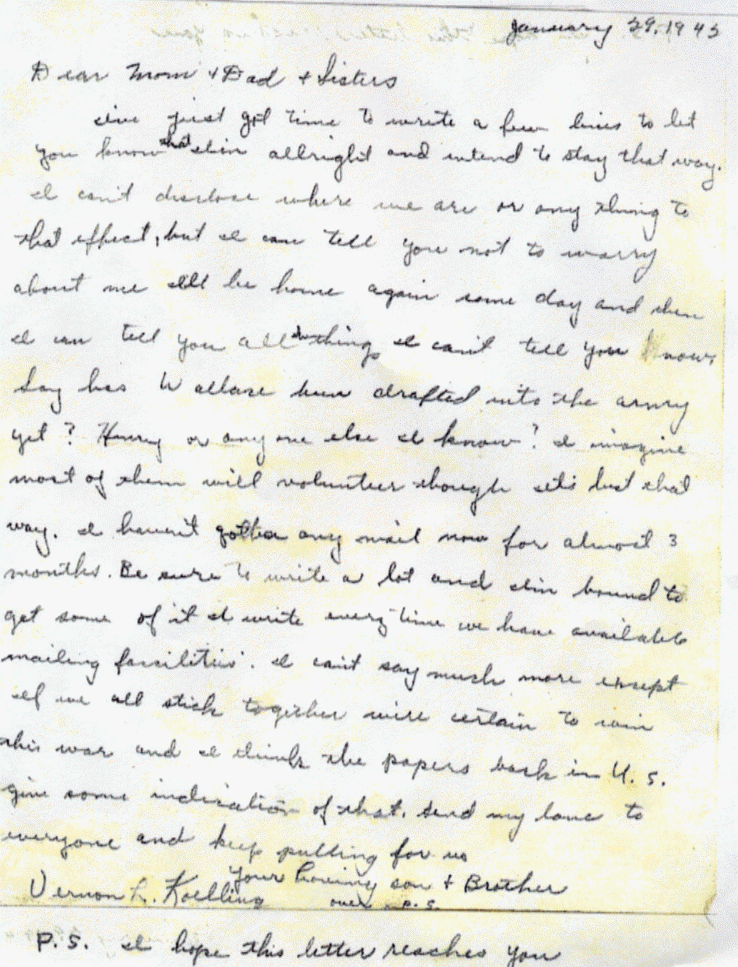 January 29, 1942
Dear Mom + Dad + Sisters
I've just got time to write a few lines to let
you know that I'm allright and intend to stay that way.
I can't disclose where we are or any thing to
that effect, but I can tell you not to worry
about me I'll be home again some day and then
I can tell you all the things I can't tell you now.
Say has Wallace been drafted into the army
yet? Henry or anyone else I know? I imagine
most of them will volunteer though it's best that
way. I haven't gotten any mail now for almost 3
months. Be sure to write a lot and I'm bound to
get some of it I write every time we have available
mailing facilities. I can't say much more except
If we all stick together we're certain to win
this war and I think the papers back in U.S.
give some indication of that. Send my love to
everyone and keep pulling for us
Your loving son + Brother
Vernon L. Koelling
over P.S.
P.S. I hope this letter reaches you